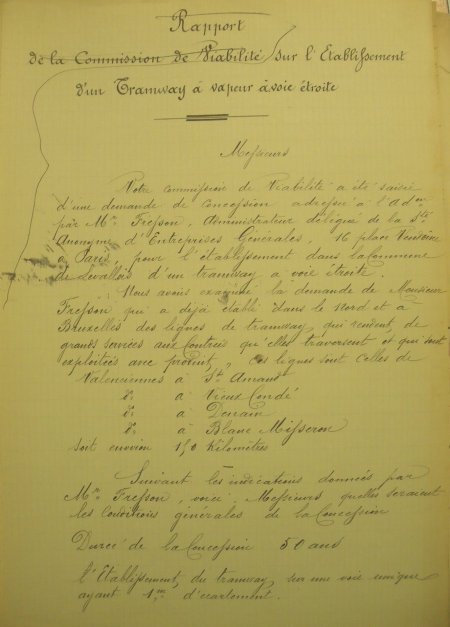 Rapport
de la Commission de Viabilité sur l'Etablissement
d'un Tramway à vapeur à voie étroite
Messieurs
Votre commission de Viabilité a été saisie
d'une demande de concession adressée à l'Adon
par Mr Fresson, Administrateur délégué de la Sté
Anonyme d'Entreprises Générales, 16 place Vendôme
à Paris, pour l'établissement dans la Commune
de Levallois d'un tramway à voie étroite.
Nous avons examiné la demande de Monsieur
Fresson qui a déjà établi dans le Nord et à
Bruxelles des lignes de tramway, qui rendent de
grands services aux Contrées qu'elles traversent et qui sont
exploitées avec profit, ces lignes sont celles de
Valenciennes à St Amand
do à Vieux Condé
do à Denain
do à Blanc Misseron
soit environ 150 Kilomètres
Suivant les indications données par
Mr Fresson, voici, Messieurs, quelles seraient
les Conditions générales de la Concession
Durée de la Concession 50 ans
L'Etablissement du tramway sur une voie unique
ayant 1m d'écartement.